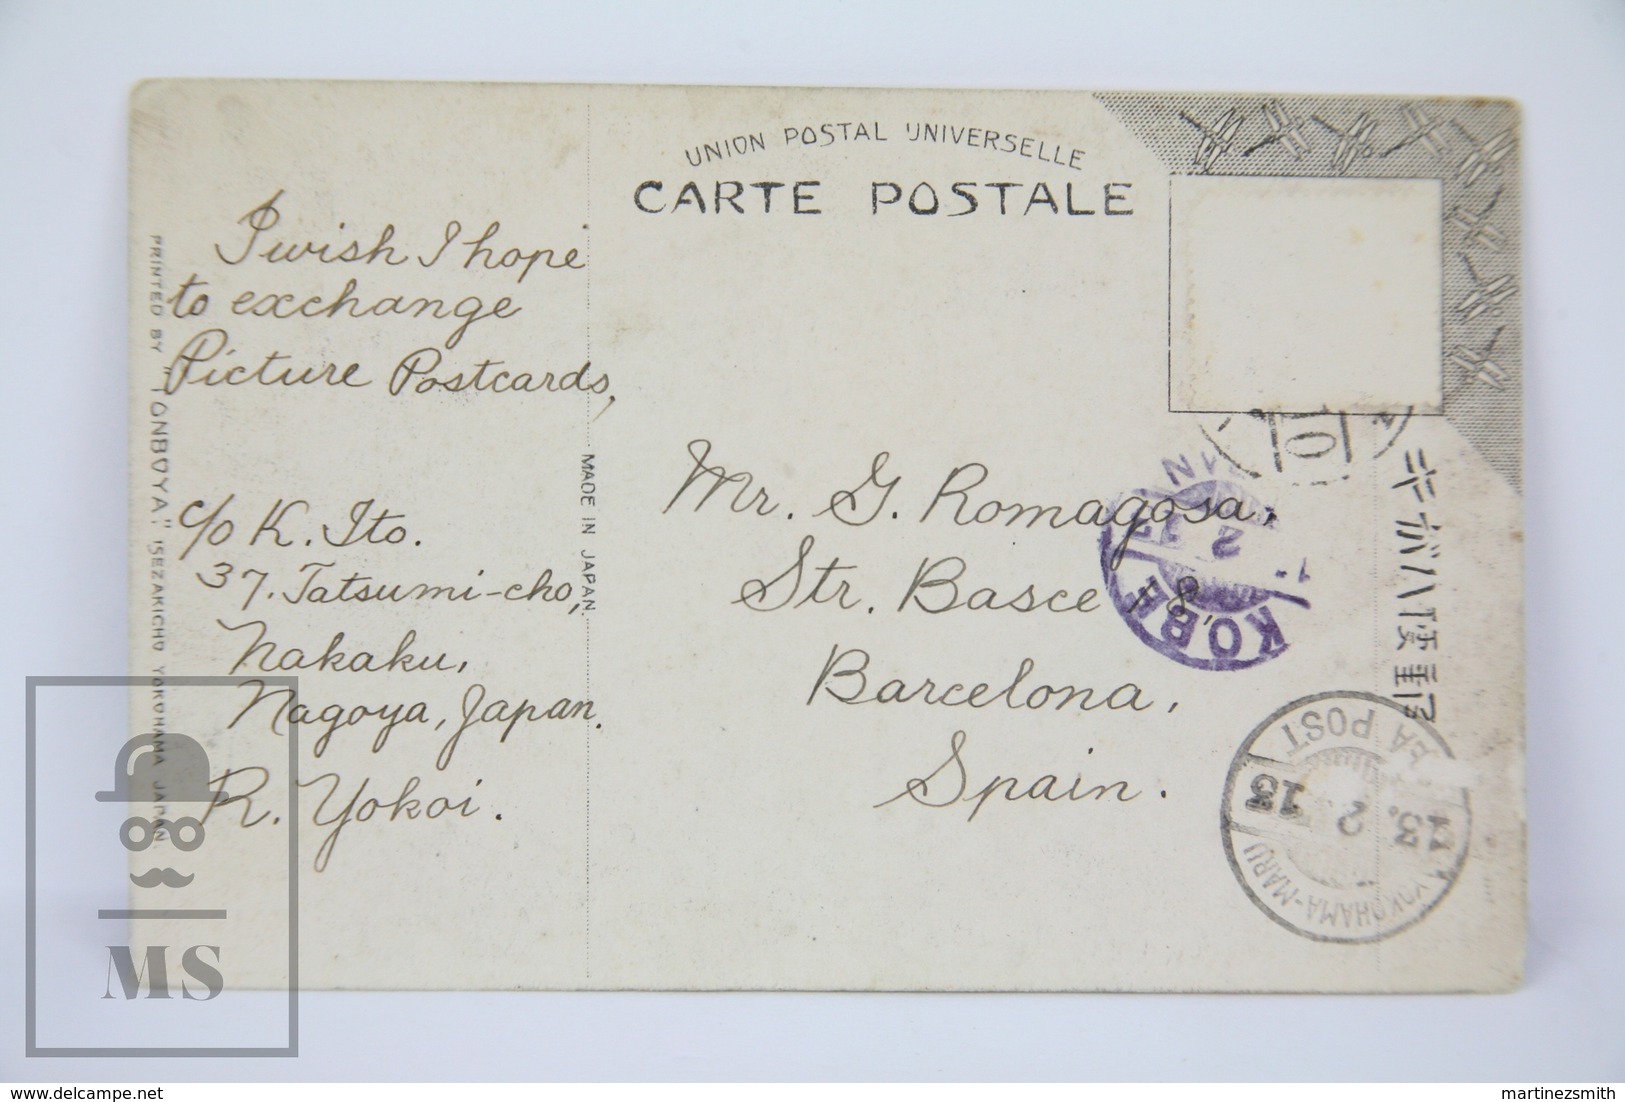 UNION POSTAL UNIVERSELLE
CARTE POSTALE
I wish I hope
to exchange
Picture Postcards,
c/o K. Ito.
37. Tatsumi-cho,
Nakaku,
Nagoya, Japan.
R. Yokoi.
Mr. G. Romagosa,
Str. Basce 18,
Barcelona,
Spain.
PRINTED BY "TONBOYA," ISEZAKICHO YOKOHAMA JAPAN
MADE IN JAPAN.
KOBE
YOKOHAMA-MARU
POST
13. 2
13
MS
delcampe.net
martinezsmith